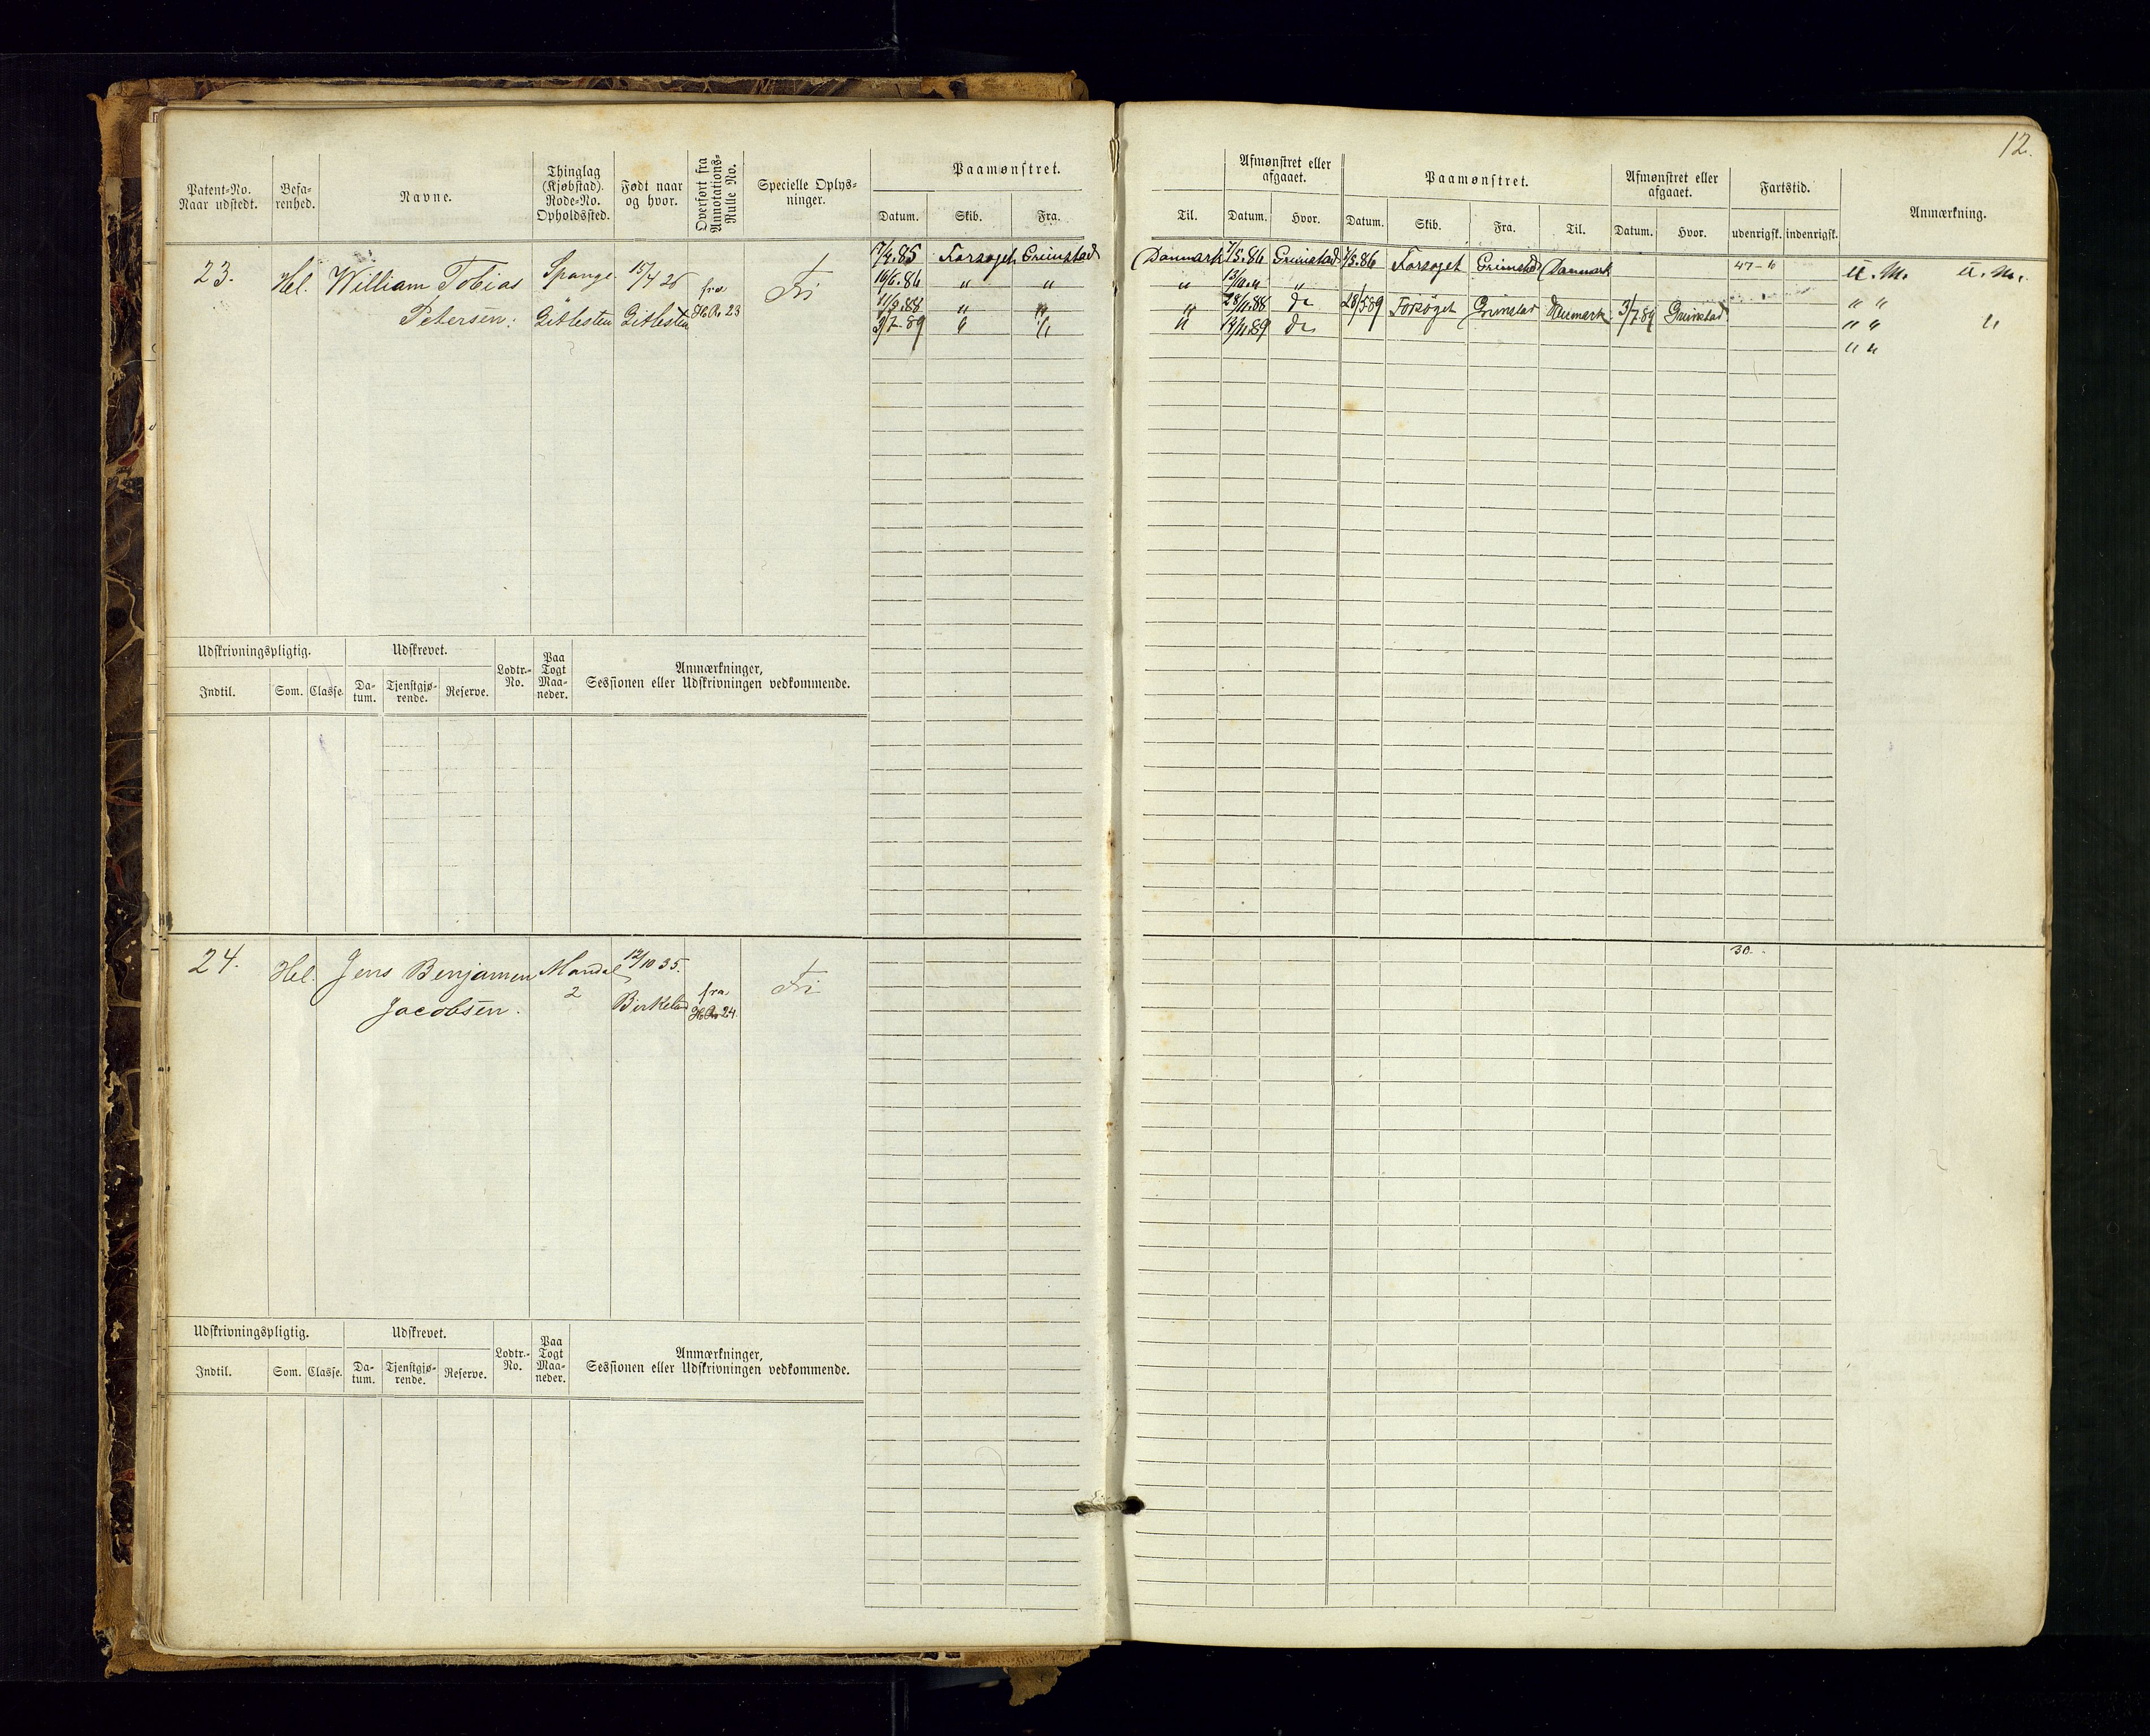 12.
Patent-No. Naar udstedt.
Befarenhed.
Navne.
Thinglag (Kjøbstad). Rode-No. Opholdssted.
Født naar og hvor.
Overført fra Annotations-Rulle No.
Specielle Oplysninger.
Paamønstret.
Datum. Skib. Fra.
Til.
Afmønstret eller afgaaet.
Datum. Hvor.
Paamønstret.
Datum. Skib. Fra. Til.
Afmønstret eller afgaaet.
Datum. Hvor.
Fartstid.
udenrigsk. indenrigsk.
Anmærkning.
23. Hel. William Tobias Spange 15/4 26 fra Fri
Petersen. 23
7/4.85 Forsøget Grimstad Danmark 7/5.86 Grimstad 7/5.86 Forsøget Grimstad Danmark 47-6 U.M. U.M.
19/6.86 " " " "
11/5.88 " " " 28/11.88 do 28/5 89 Forsøget Grimstad 3/7.89 Grimstad " "
3/7.89 " " " 14/11.89 do " " "
" "
Udskrivningspligtig.
Indtil. Som. Classe.
Udskrevet.
Datum. Tjenstgjørende. Reserve.
Lodtr.-No.
Paa Togt Maaneder.
Anmærkninger,
Sessionen eller Udskrivningen vedkommende.
24. Hel. Jens Benjamin Mandal 12/10 35. fra Fri 30.
Jacobsen. 2 Birkeland 24.
Udskrivningspligtig.
Indtil. Som. Classe.
Udskrevet.
Datum. Tjenstgjørende. Reserve.
Lodtr.-No.
Paa Togt Maaneder.
Anmærkninger,
Sessionen eller Udskrivningen vedkommende.